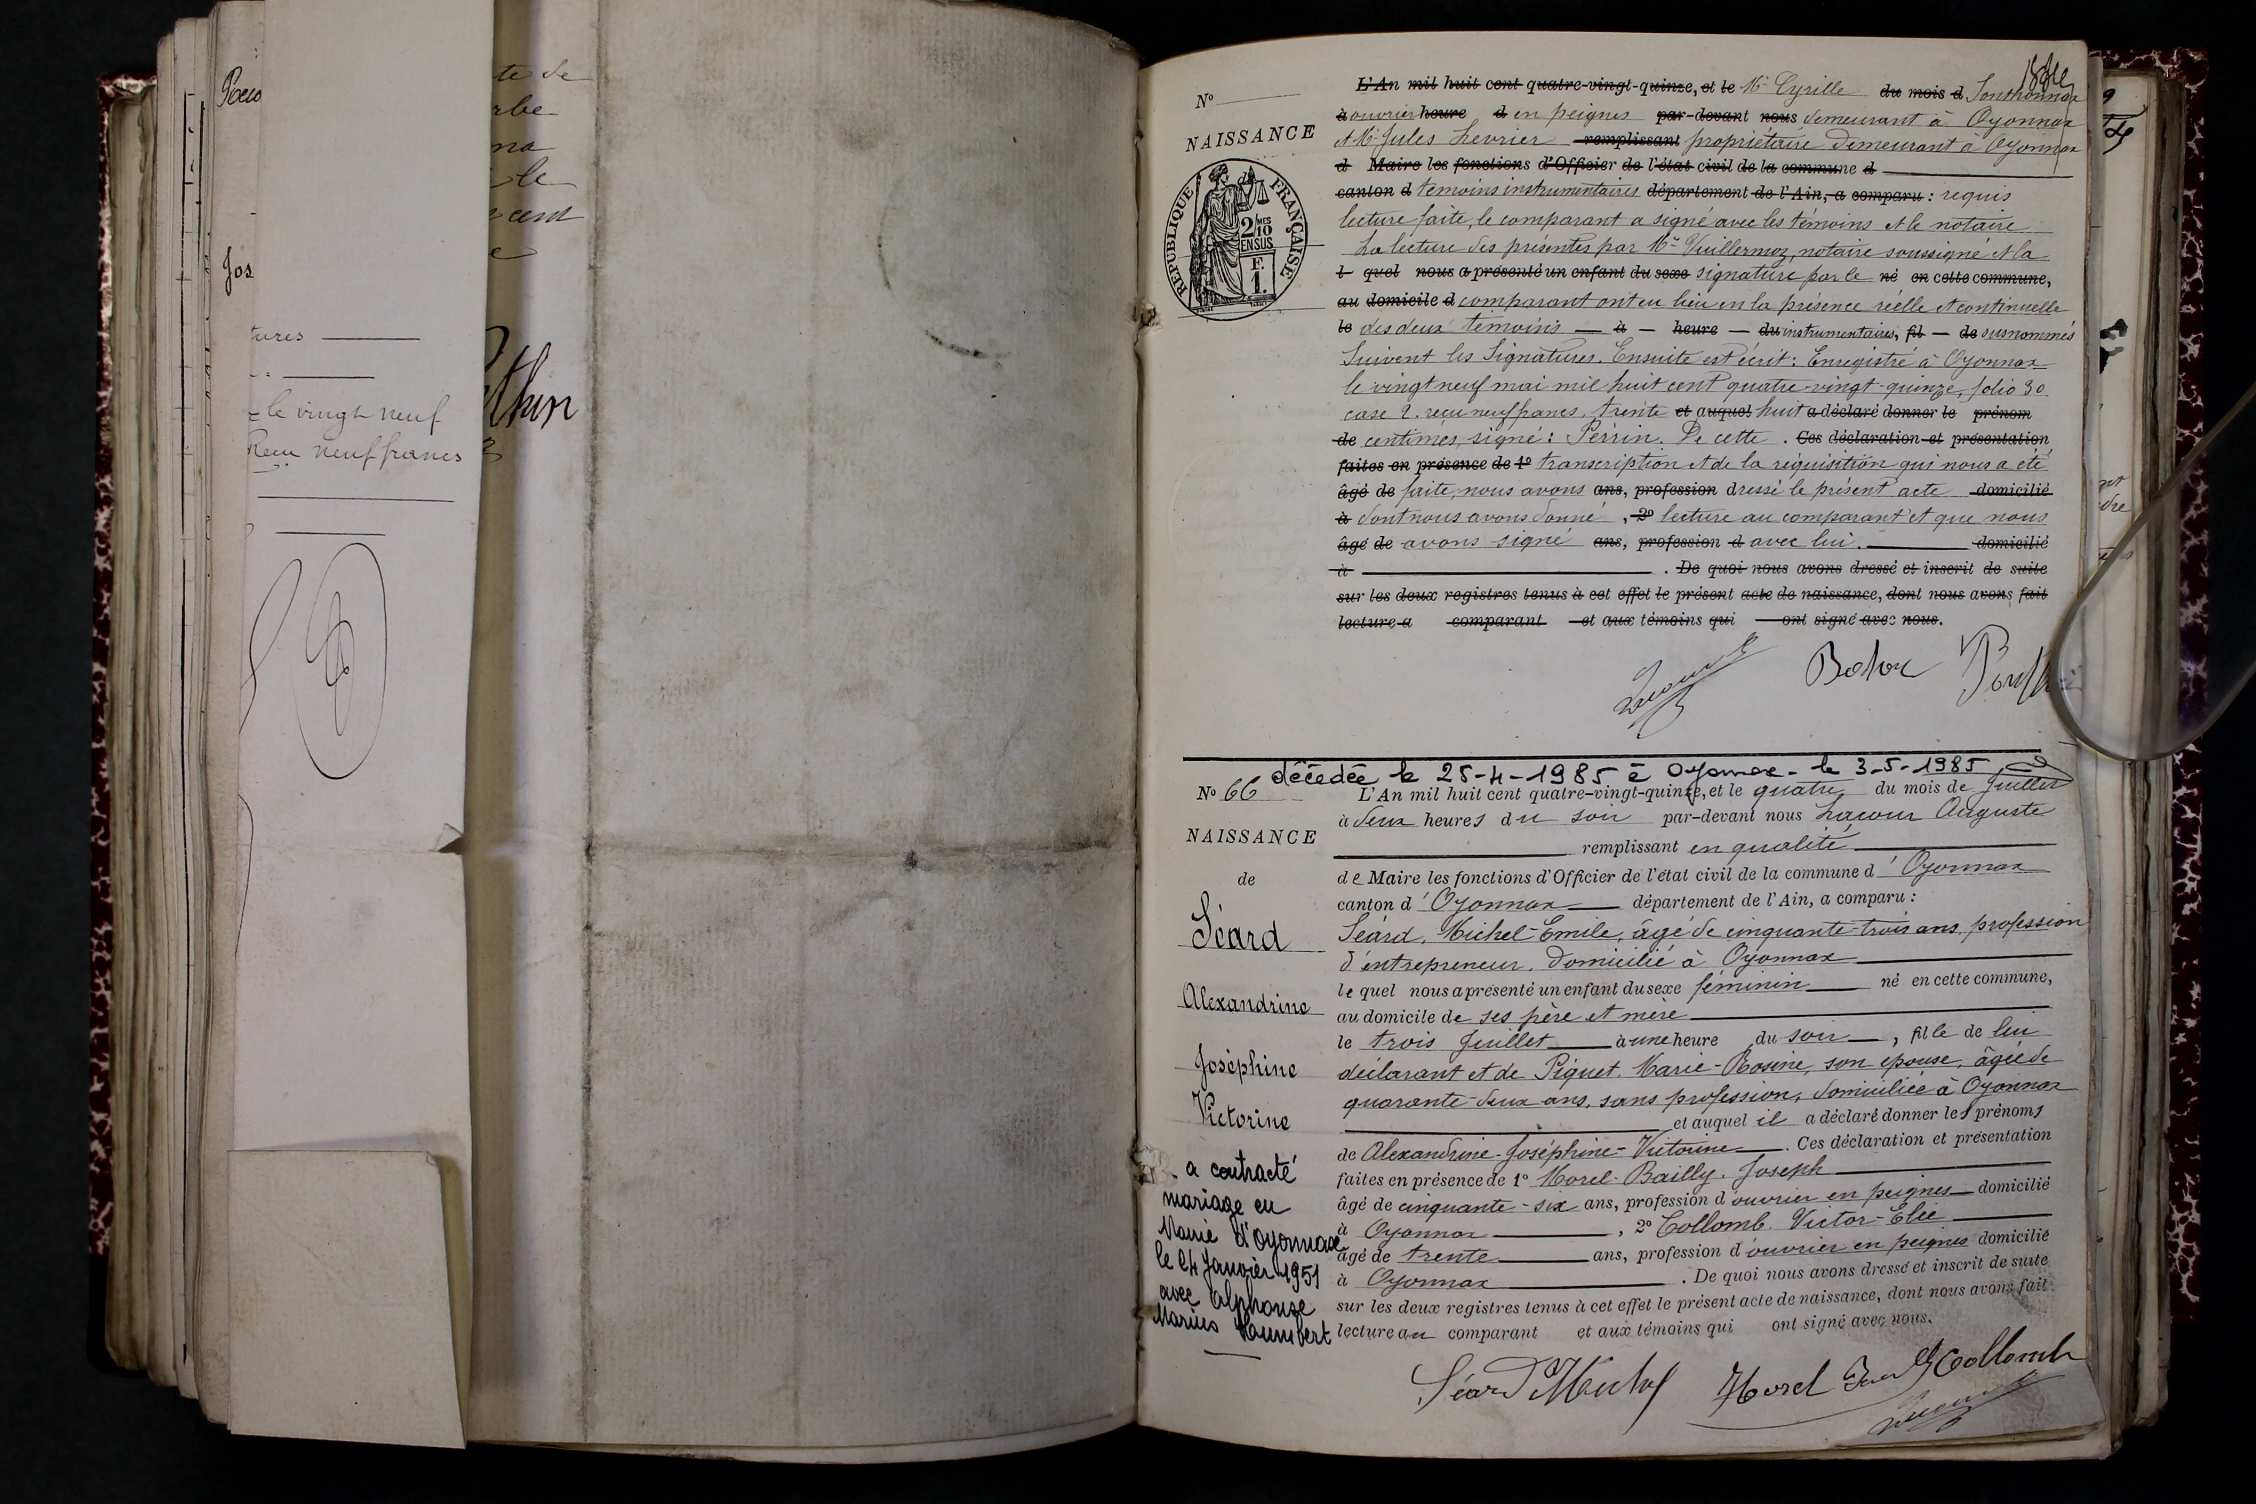 Recu
Jos
tures
le vingt neuf
Recu neuf francs
te de
rbe
na
le
cent
thin
N°
NAISSANCE
REPUBLIQUE FRANÇAISE
2/10
EN SUS
F.
1.
L'An mil huit cent quatre-vingt-quinze, et le Mr Cyrille du mois d Jonthonnax
à ouvrier heure d en peignes par-devant nous demeurant à Oyonnax
et Mr Jules Levrier remplissant propriétaire demeurant à Oyonnax
d Maire les fonctions d'Officier de l'état civil de la commune d
canton d témoins instrumentaires département de l'Ain, a comparu : requis
lecture faite, le comparant a signé avec les témoins et le notaire
La lecture des présentes par Me Vuillermoz, notaire soussigné et la
l quel nous a présenté un enfant du sexe signature par le né en cette commune,
au domicile d comparant ont eu lieu en la présence réelle et continuelle
le des deux témoins à heure du instrumentaires, fil de susnommés
Suivent les Signatures. Ensuite est écrit : Enregistré à Oyonnax
le vingt neuf mai mil huit cent quatre-vingt-quinze, folio 30
case 2. recu neuf francs, trente et auquel huit a déclaré donner le prénom
de centimes, signé : Perrin. De cette . Ces déclaration et présentation
faites en présence de 1° transcription et de la réquisition qui nous a été
âgé de faite, nous avons ans, profession dressé le présent acte domicilié
à dont nous avons donné , 2° lecture au comparant et que nous
âgé de avons signé ans, profession d avec lui. domicilié
à . De quoi nous avons dressé et inscrit de suite
sur les deux registres tenus à cet effet le présent acte de naissance, dont nous avons fait
lecture a comparant et aux témoins qui ont signé avec nous.
décédée le 25-4-1985 à Oyonnax - le 3-5-1985
N° 66
NAISSANCE
de
Séard
Alexandrine
Joséphine
Victorine
a contracté
mariage en
Mairie d'Oyonnax
le 24 Janvier 1951
avec Alphonse
Marius Humbert
L'An mil huit cent quatre-vingt-quinze, et le quatre du mois de Juillet
à deux heures du soir par-devant nous Lacour Auguste
remplissant en qualité
de Maire les fonctions d'Officier de l'état civil de la commune d'Oyonnax
canton d'Oyonnax département de l'Ain, a comparu :
Séard, Michel-Emile, âgé de cinquante-trois ans, profession
d'entrepreneur, domicilié à Oyonnax
lequel nous a présenté un enfant du sexe féminin né en cette commune,
au domicile de ses père et mère
le trois Juillet à une heure du soir , fille de lui
déclarant et de Piquet, Marie-Rosine, son épouse, âgée de
quarante-deux ans, sans profession, domiciliée à Oyonnax
et auquel il a déclaré donner les prénoms
de Alexandrine-Joséphine-Victorine . Ces déclaration et présentation
faites en présence de 1° Morel-Bailly, Joseph
âgé de cinquante-six ans, profession d'ouvrier en peignes domicilié
à Oyonnax , 2° Collomb, Victor-Elie
âgé de trente ans, profession d'ouvrier en peignes domicilié
à Oyonnax . De quoi nous avons dressé et inscrit de suite
sur les deux registres tenus à cet effet le présent acte de naissance, dont nous avons fait
lecture au comparant et aux témoins qui ont signé avec nous.
Séard Michel Morel Collomb